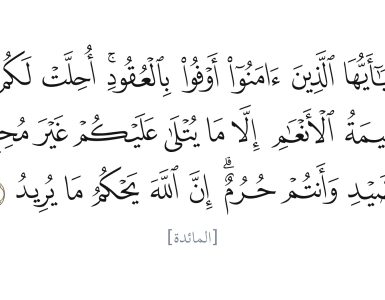 يَٰٓأَيُّهَا ٱلَّذِينَ ءَامَنُوٓا۟ أَوْفُوا۟ بِٱلْعُقُودِ ۚ أُحِلَّتْ لَكُم
يمَةُ ٱلْأَنْعَٰمِ إِلَّا مَا يُتْلَىٰ عَلَيْكُمْ غَيْرَ مُحِ
صَّيْدِ وَأَنتُمْ حُرُمٌ ۗ إِنَّ ٱللَّهَ يَحْكُمُ مَا يُرِيدُ
[المائدة]